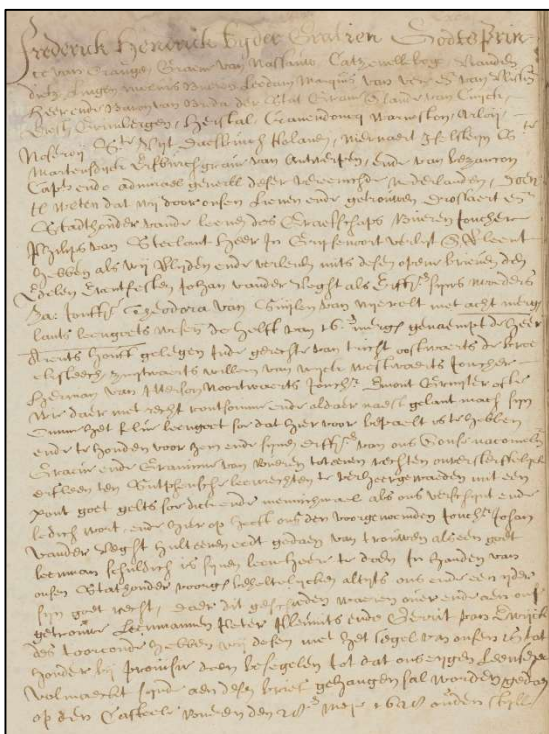 Frederick Hendrick bijder Gratien Godts Prin-
ce van Orangen, Graeve van Nassauw, Catzenellboge, Vianden
dietz, Lingen, Moeurs, Buren, Leerdam, Marquis van der Vere, van Vlissin
Heer ende Baron van Breda, der Stat Grave, Lande van Cuijck
Diest, Grimbergen, Herstal, Cranendonck, Warneston, Arlaij,
Noseroij, St Vijt, Daesburch, Polanen, Niervaert, IJselsteijn, St
Martensdijck, Erfburchgrave van Antwerpen, ende van Bezancon
Capn ende admirael generll deser vereenichde Nederlanden, Doen
te weten dat wij door onsen Lieven ende getrouwen Drossaert en
Stadthouder vande Leenen des Graeffschaps Bueren Joncher
Philips van Steelant heer in Grijsoort verlijt Verleent
hebben als wij Verlijden ende verleenen mits desen openen brieve, den
Edelen Erentfesten Johan vander Veght als Erffgen sijns moeders
Jouffr Theodora van Tuijlen van Nijevelt met acht merg
lants leengoets wesende de helft van 16 mergen genaempt de heer
Arents hoeff gelegen inde gerechte van Tricht oostwaerts de
suijtwaerts willem van wijck westwaerts Joncher
Herman van noortwaerts Jonchr
wie daer met recht rontsomme ende aldaer naest gelant mach sijn
leengoet soe dat hier voor bepaelt is te hebben
ende te houden voor hem ende sijnen erffgen van ons ende onse nacomelingen
Graven ende Gravinne van Bueren tot eenen rechten onversterffelijcken
erffleen ten Zutphensche leenrechten te verheergewaden mit een
pont goet gelts soe dick ende mennichmael als ons verschijnt ende
ledich wort, ende hier op heeft ons den voorgenoemden Jonchr Johan
vander Veght hult eende eedt gedaen van trouwen als een goet
leenman schuldich is sijnen leenheer te doen in handen van
onsen Stathouder voorgs beheltelijcken altijts ons ende een ijder
sijn goet recht, daer dit geschieden waeren over ende aen onse
getrouwe Leenmannen Peter ende Gerrit van
des toirconde hebben wij desen met het segel van onsen Stat
houder bij provisie doen besegelen tot dat ons eijgen Leensegel
volmaeckt sijnde aen desen brieff gehangen sal worden gedaen
op den Casteele Bueren den Meij ouden stijll